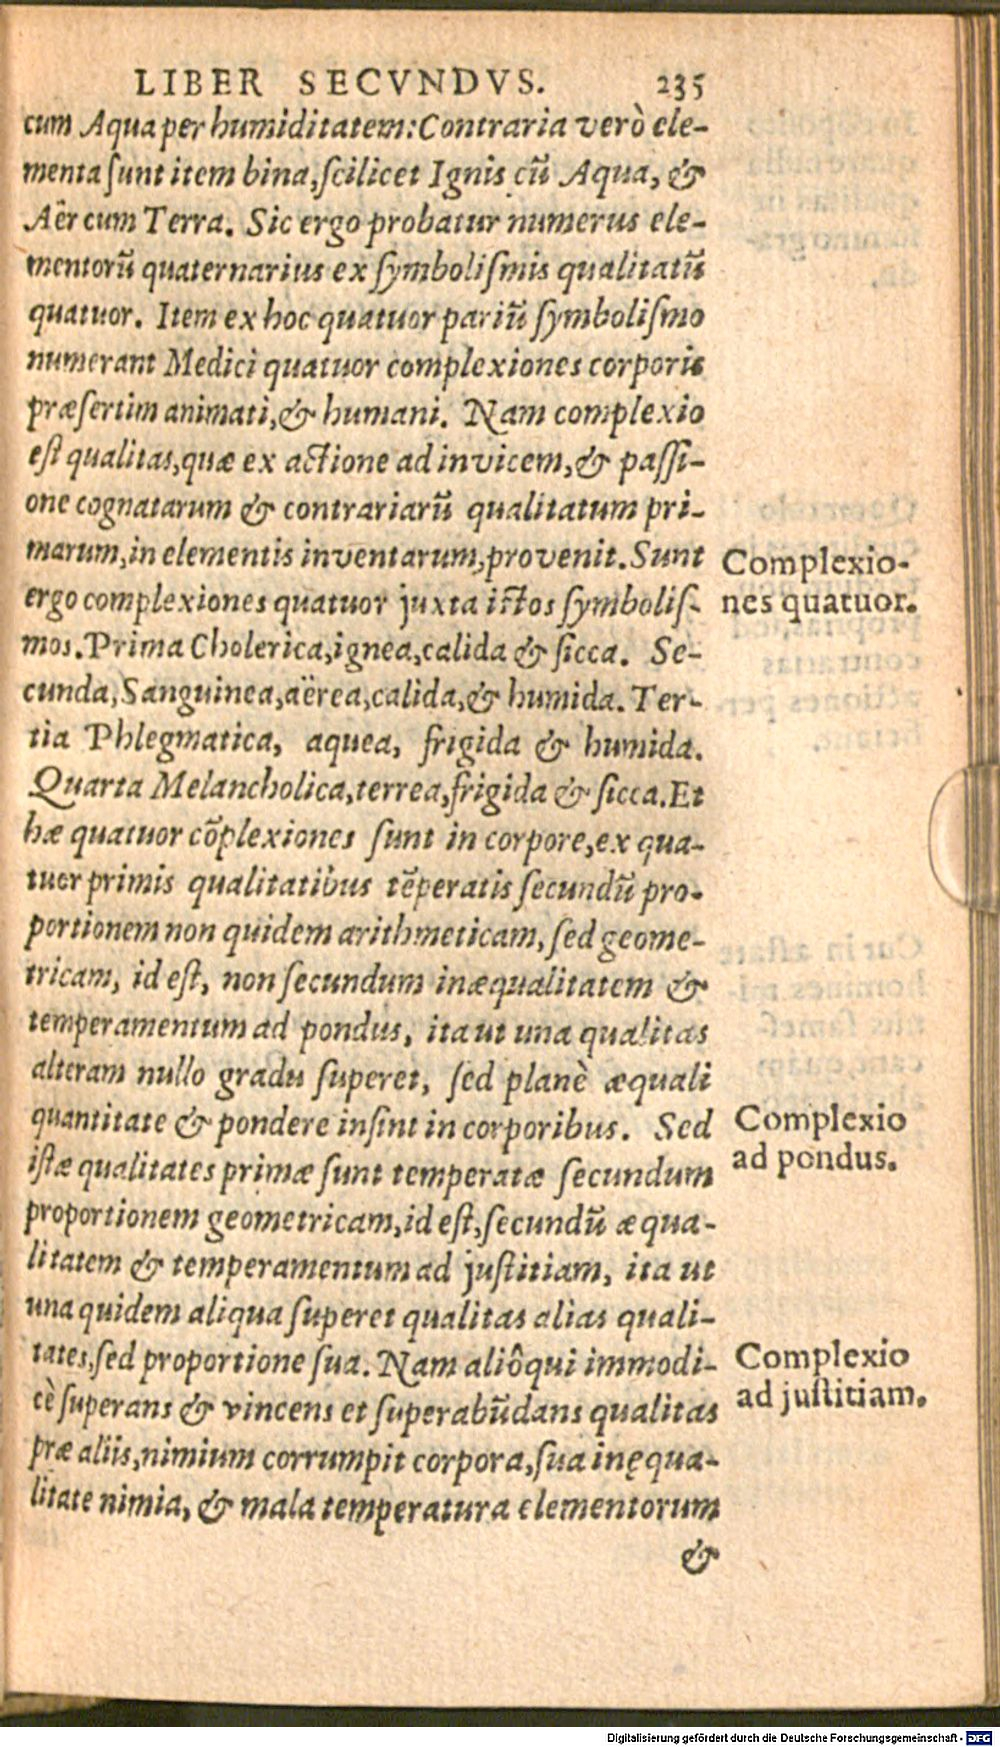 LIBER SECVNDVS. 235
cum Aqua per humiditatem: Contraria verò ele-
menta ſunt item bina, ſcilicet Ignis cũ Aqua, &
Aër cum Terra. Sic ergo probatur numerus ele-
mentorũ quaternarius ex ſymboliſmis qualitatũ
quatuor. Item ex hoc quatuor pariũ ſymboliſmo
numerant Medici quatuor complexiones corporis
præſertim animati, & humani. Nam complexio
eſt qualitas, quæ ex actione ad invicem, & paſſi-
one cognatarum & contrariarũ qualitatum pri-
marum, in elementis inventarum, provenit. Sunt
ergo complexiones quatuor juxta iſtos ſymboliſ-
mos. Prima Cholerica, ignea, calida & ſicca. Se-
cunda, Sanguinea, aërea, calida, & humida. Ter-
tia Phlegmatica, aquea, frigida & humida.
Quarta Melancholica, terrea, frigida & ſicca. Et
hæ quatuor cõplexiones ſunt in corpore, ex qua-
tuor primis qualitatibus tẽperatis ſecundũ pro-
portionem non quidem arithmeticam, ſed geome-
tricam, id eſt, non ſecundum inæqualitatem &
temperamentum ad pondus, ita ut una qualitas
alteram nullo gradu ſuperet, ſed planè æquali
quantitate & pondere inſint in corporibus. Sed
iſtæ qualitates primæ ſunt temperatæ ſecundum
proportionem geometricam, id eſt, ſecundũ æqua-
litatem & temperamentum ad juſtitiam, ita ut
una quidem aliqua ſuperet qualitas alias quali-
tates, ſed proportione ſua. Nam aliôqui immodi-
cè ſuperans & vincens et ſuperabũdans qualitas
præ aliis, nimium corrumpit corpora, ſua inęqua-
litate nimia, & mala temperatura elementorum
&
Complexio-
nes quatuor.
Complexio
ad pondus.
Complexio
ad juſtitiam.
Digitalisierung gefördert durch die Deutsche Forschungsgemeinschaft - DFG